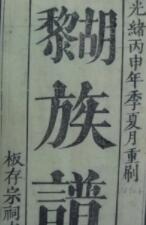 光緒丙申年季夏月重刷
胡
黎
族
譜
板存宗祠